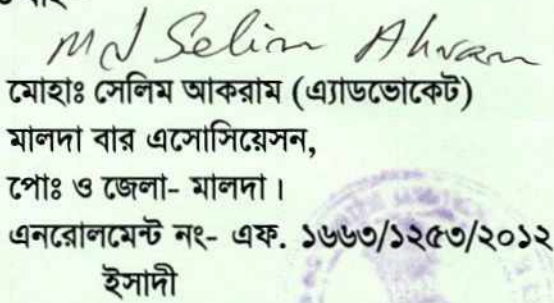 Md Selim Akram
মোহাঃ সেলিম আকরাম (এ্যাডভোকেট)
মালদা বার এসোসিয়েসন,
পোঃ ও জেলা- মালদা।
এনরোলমেন্ট নং- এফ. ১৬৬৩/১২৫৩/২০১২
ইসাদী